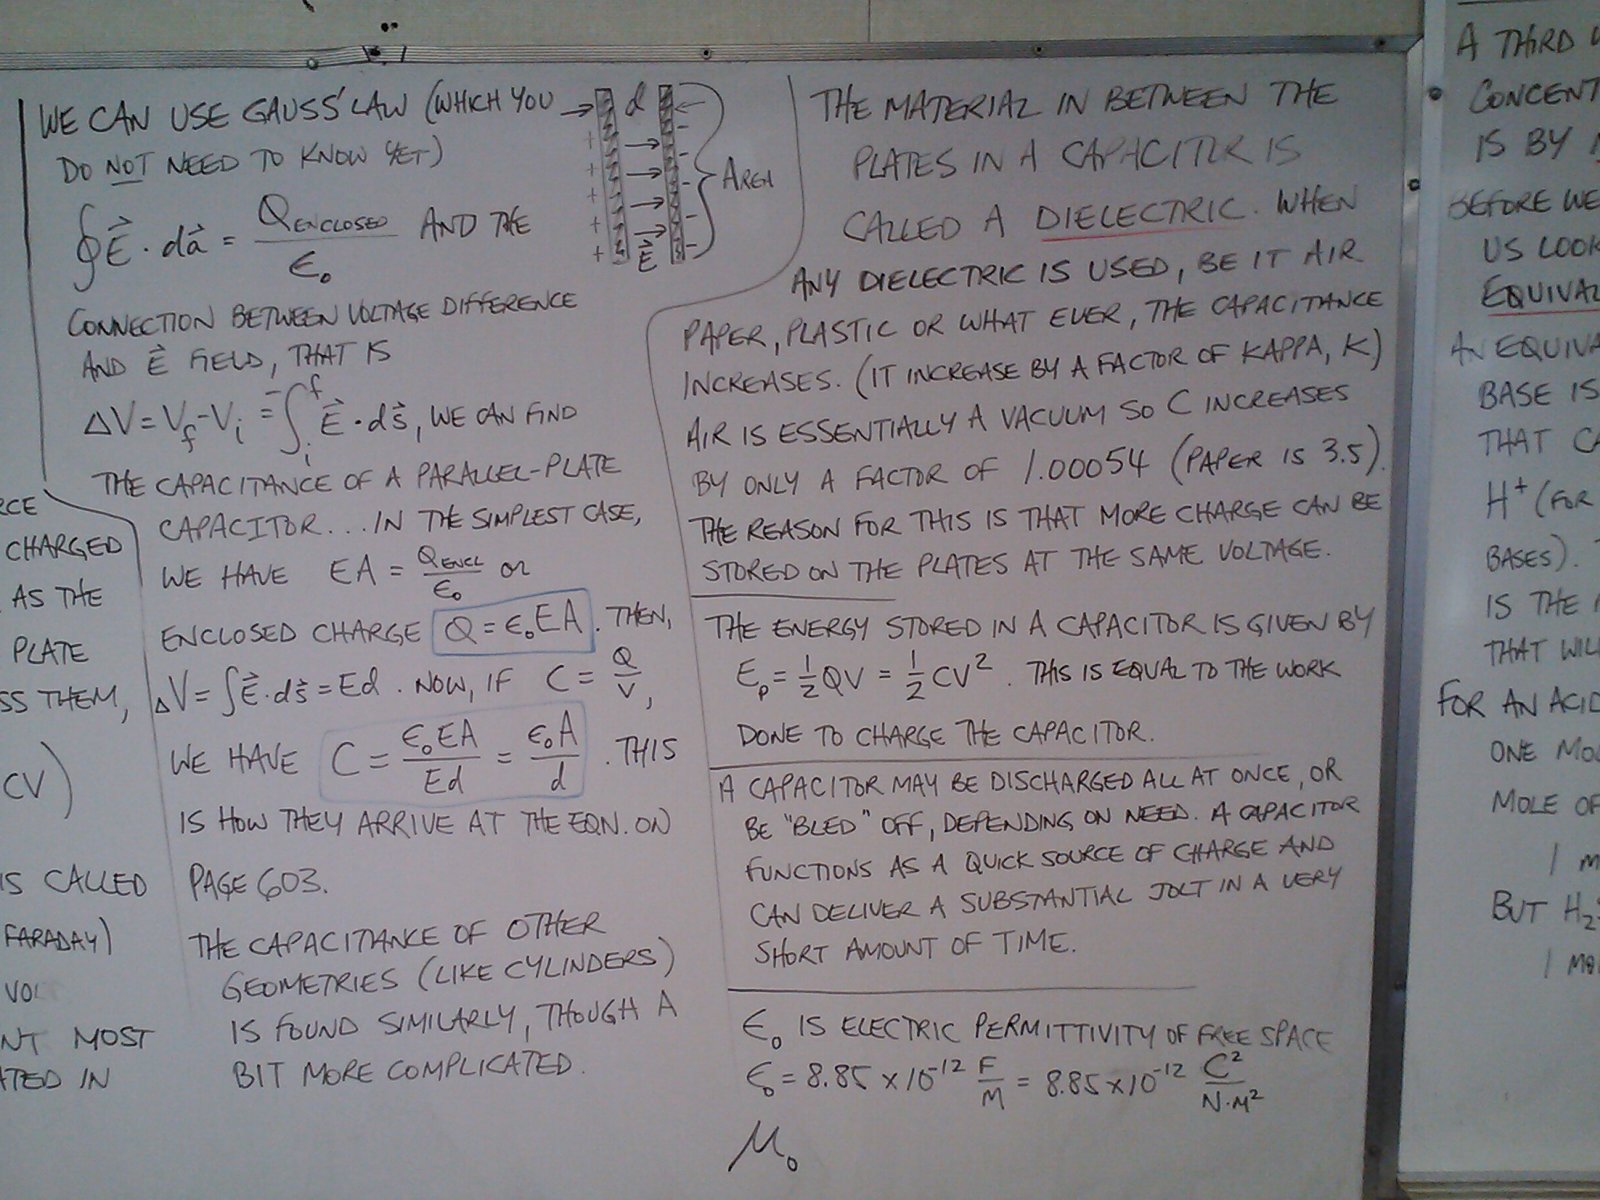 WE CAN USE GAUSS' LAW (WHICH YOU
DO NOT NEED TO KNOW YET)
∮E⃗ · da⃗ = Q_ENCLOSED / ε₀ AND THE
CONNECTION BETWEEN VOLTAGE DIFFERENCE
AND E⃗ FIELD, THAT IS
ΔV = V_f - V_i = -∫_i^f E⃗ · ds⃗, WE CAN FIND
THE CAPACITANCE OF A PARALLEL-PLATE
CAPACITOR... IN THE SIMPLEST CASE,
WE HAVE EA = Q_ENCL / ε₀ OR
ENCLOSED CHARGE Q = ε₀EA. THEN,
ΔV = ∫E⃗ · ds⃗ = Ed. NOW, IF C = Q/V,
WE HAVE C = ε₀EA / Ed = ε₀A / d. THIS
IS HOW THEY ARRIVE AT THE EQN. ON
PAGE 603.
THE CAPACITANCE OF OTHER
GEOMETRIES (LIKE CYLINDERS)
IS FOUND SIMILARLY, THOUGH A
BIT MORE COMPLICATED.
d
+ + + + +
- - - - -
E⃗
AREA
THE MATERIAL IN BETWEEN THE
PLATES IN A CAPACITOR IS
CALLED A DIELECTRIC. WHEN
ANY DIELECTRIC IS USED, BE IT AIR
PAPER, PLASTIC OR WHAT EVER, THE CAPACITANCE
INCREASES. (IT INCREASE BY A FACTOR OF KAPPA, K)
AIR IS ESSENTIALLY A VACUUM SO C INCREASES
BY ONLY A FACTOR OF 1.00054 (PAPER IS 3.5).
THE REASON FOR THIS IS THAT MORE CHARGE CAN BE
STORED ON THE PLATES AT THE SAME VOLTAGE.
THE ENERGY STORED IN A CAPACITOR IS GIVEN BY
E_p = 1/2 QV = 1/2 CV². THIS IS EQUAL TO THE WORK
DONE TO CHARGE THE CAPACITOR.
A CAPACITOR MAY BE DISCHARGED ALL AT ONCE, OR
BE "BLED" OFF, DEPENDING ON NEED. A CAPACITOR
FUNCTIONS AS A QUICK SOURCE OF CHARGE AND
CAN DELIVER A SUBSTANTIAL JOLT IN A VERY
SHORT AMOUNT OF TIME.
ε₀ IS ELECTRIC PERMITTIVITY OF FREE SPACE
ε₀ = 8.85 × 10⁻¹² F/M = 8.85 × 10⁻¹² C² / N·M²
μ₀
CHARGED
AS THE
PLATE
SS THEM,
CV)
IS CALLED
FARADAY)
NT MOST
ATED IN
A THIRD
CONCENT
IS BY
BEFORE WE
US LOOK
EQUIVAL
AN EQUIVA
BASE IS
THAT CA
H⁺ (FOR
BASES).
IS THE
THAT WIL
FOR AN ACID
ONE MOL
MOLE OF
1 M
BUT H₂
1 MO